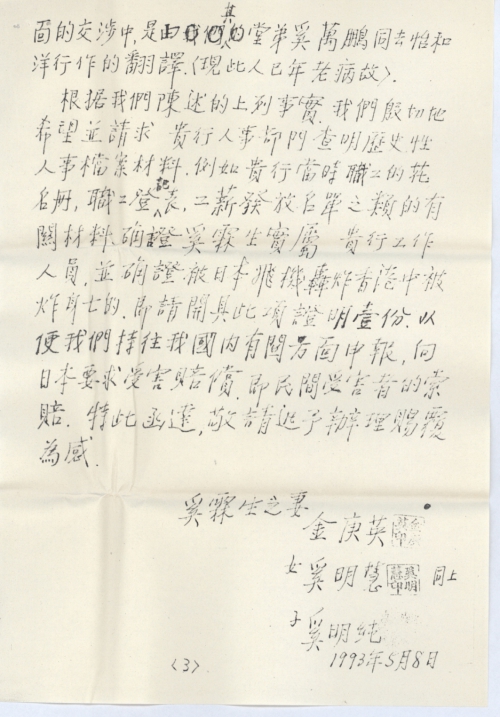 面的交涉中,是由其人的堂弟奚萬鵬同去怡和
洋行作的翻譯.(現此人已年老病故).
根据我們陳述的上列事實.我們殷切地
希望並請求 貴行人事部門查明歷史性
人事檔案材料.例如貴行當時職工的花
名册,職工登記表,工薪發放名單之類的有
關材料.确證奚霖生實屬 貴行工作
人員,並确證被日本飛機轟炸香港中被
炸身亡的.即請開具此項證明壹份.以
便我們持往我國内有關方面申報,向
日本要求受害賠償.即民間受害者的索
賠.特此函達,敬請迅予辦理賜覆
為感.
奚霖生之妻
金庚英
女奚明慧 同上
子奚明純
1993年5月8日
<3>